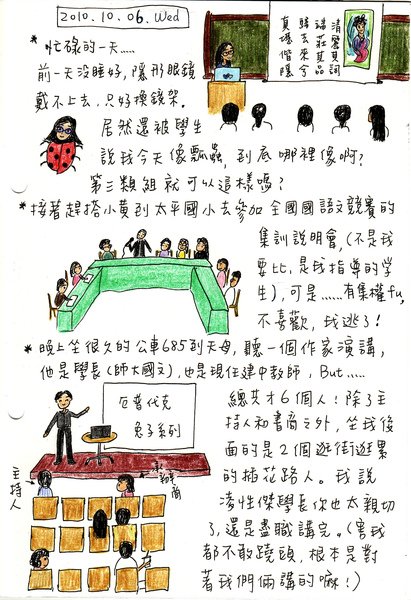 2010.10.06.Wed
*忙碌的一天.....
前一天沒睡好,隱形眼鏡
戴不上去,只好換鏡架。
居然還被學生
說我今天像瓢蟲,到底哪裡像啊?
第三類組就可以這樣嗎?
*接著趕搭小黃到太平國小去參加全國國語文競賽的
集訓說明會,(不是我
要比,是我指導的學
生),可是......有集權fu,
不喜歡,我逃了!
*晚上坐很久的公車685到天母,聽一個作家演講,
他是學長(師大國文),也是現任建中教師,But.....
厄普代克
兔子系列
主持人
書商
總共才6個人!除了主
持人和書商之外,坐我後
面的是2個逛街逛累
的插花路人。我說
凌性傑學長你也太親切
了,還是盡職講完。(害我
都不敢蹺頭,根本是對
著我們倆講的嘛!)